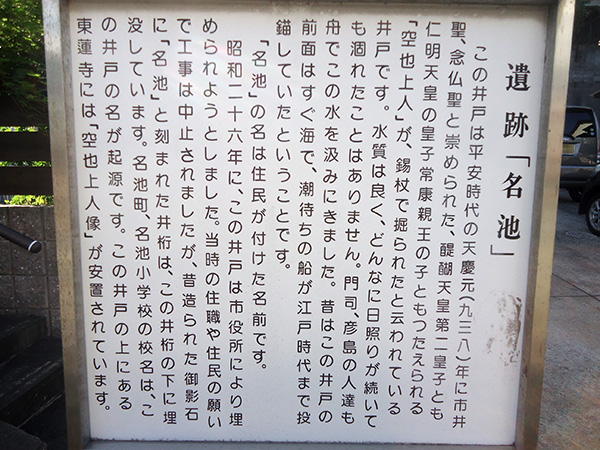 遺跡「名池」
この井戸は平安時代の天慶元(九三八)年に市井
聖、念仏聖と崇められた、醍醐天皇第二皇子とも
仁明天皇の皇子常康親王の子ともつたえられる
「空也上人」が、錫杖で掘られたと云われている
井戸です。水質は良く、どんなに日照りが続いて
も涸れたことはありません。門司、彦島の人達も
舟でこの水を汲みにきました。昔はこの井戸の
前面はすぐ海で、潮待ちの船が江戸時代まで投
錨していたということです。
「名池」の名は住民が付けた名前です。
昭和二十六年に、この井戸は市役所により埋
められようとしました。当時の住職や住民の願い
で工事は中止されましたが、昔造られた御影石
に「名池」と刻まれた井桁は、この井桁の下に埋
没しています。名池町、名池小学校の校名は、こ
の井戸の名が起源です。この井戸の上にある
東蓮寺には「空也上人像」が安置されています。